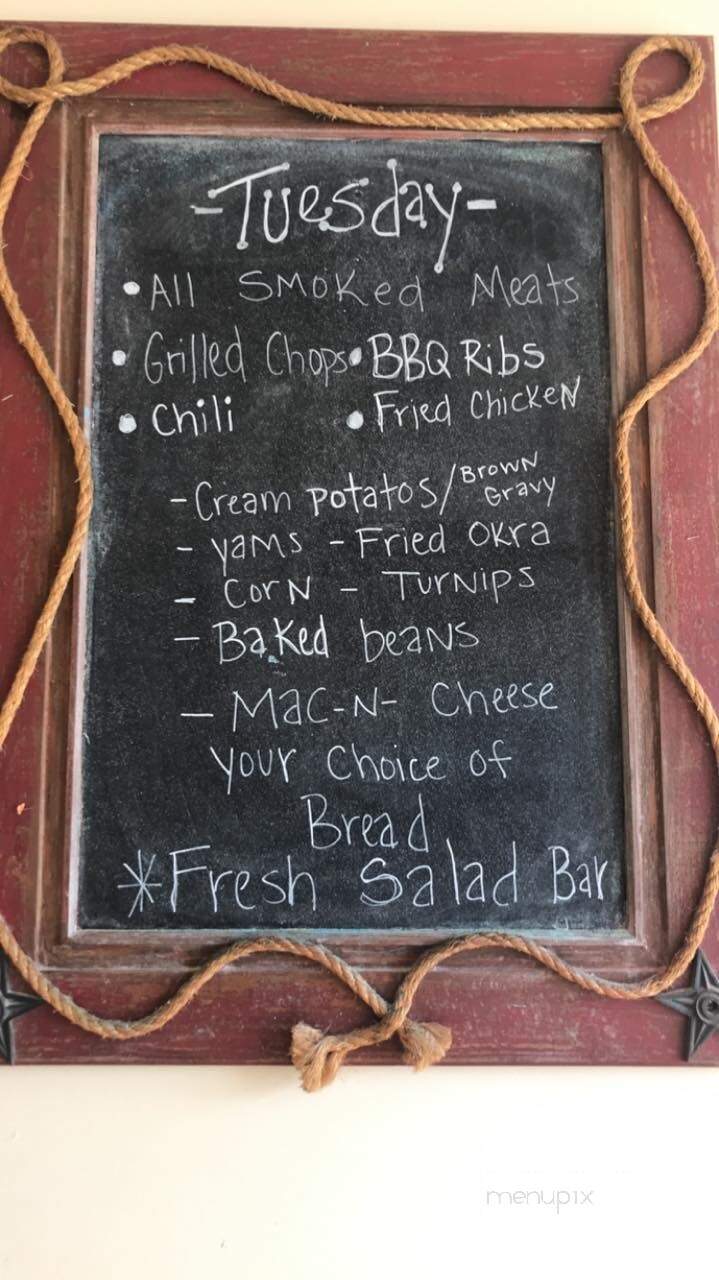 -Tuesday-
• All Smoked Meats
• Grilled Chops • BBQ Ribs
• Chili • Fried Chicken
- Cream potatos/Brown Gravy
- yams - Fried Okra
- Corn - Turnips
- Baked beans
- Mac-N- Cheese
your Choice of
Bread
*Fresh Salad Bar
menupix